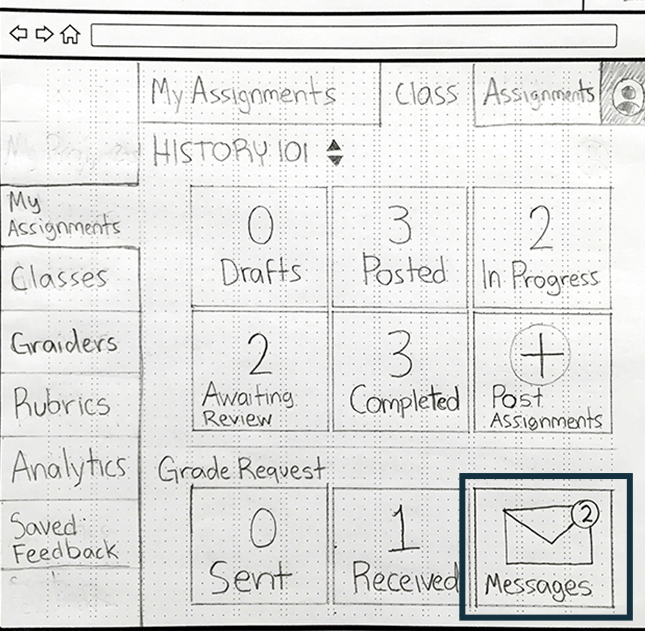 My Assignments
Class
Assignments
HISTORY 101
My
Assignments
Classes
Graiders
Rubrics
Analytics
Saved
Feedback
0
Drafts
3
Posted
2
In Progress
2
Awaiting
Review
3
Completed
+
Post
Assignments
Grade Request
0
Sent
1
Received
2
Messages